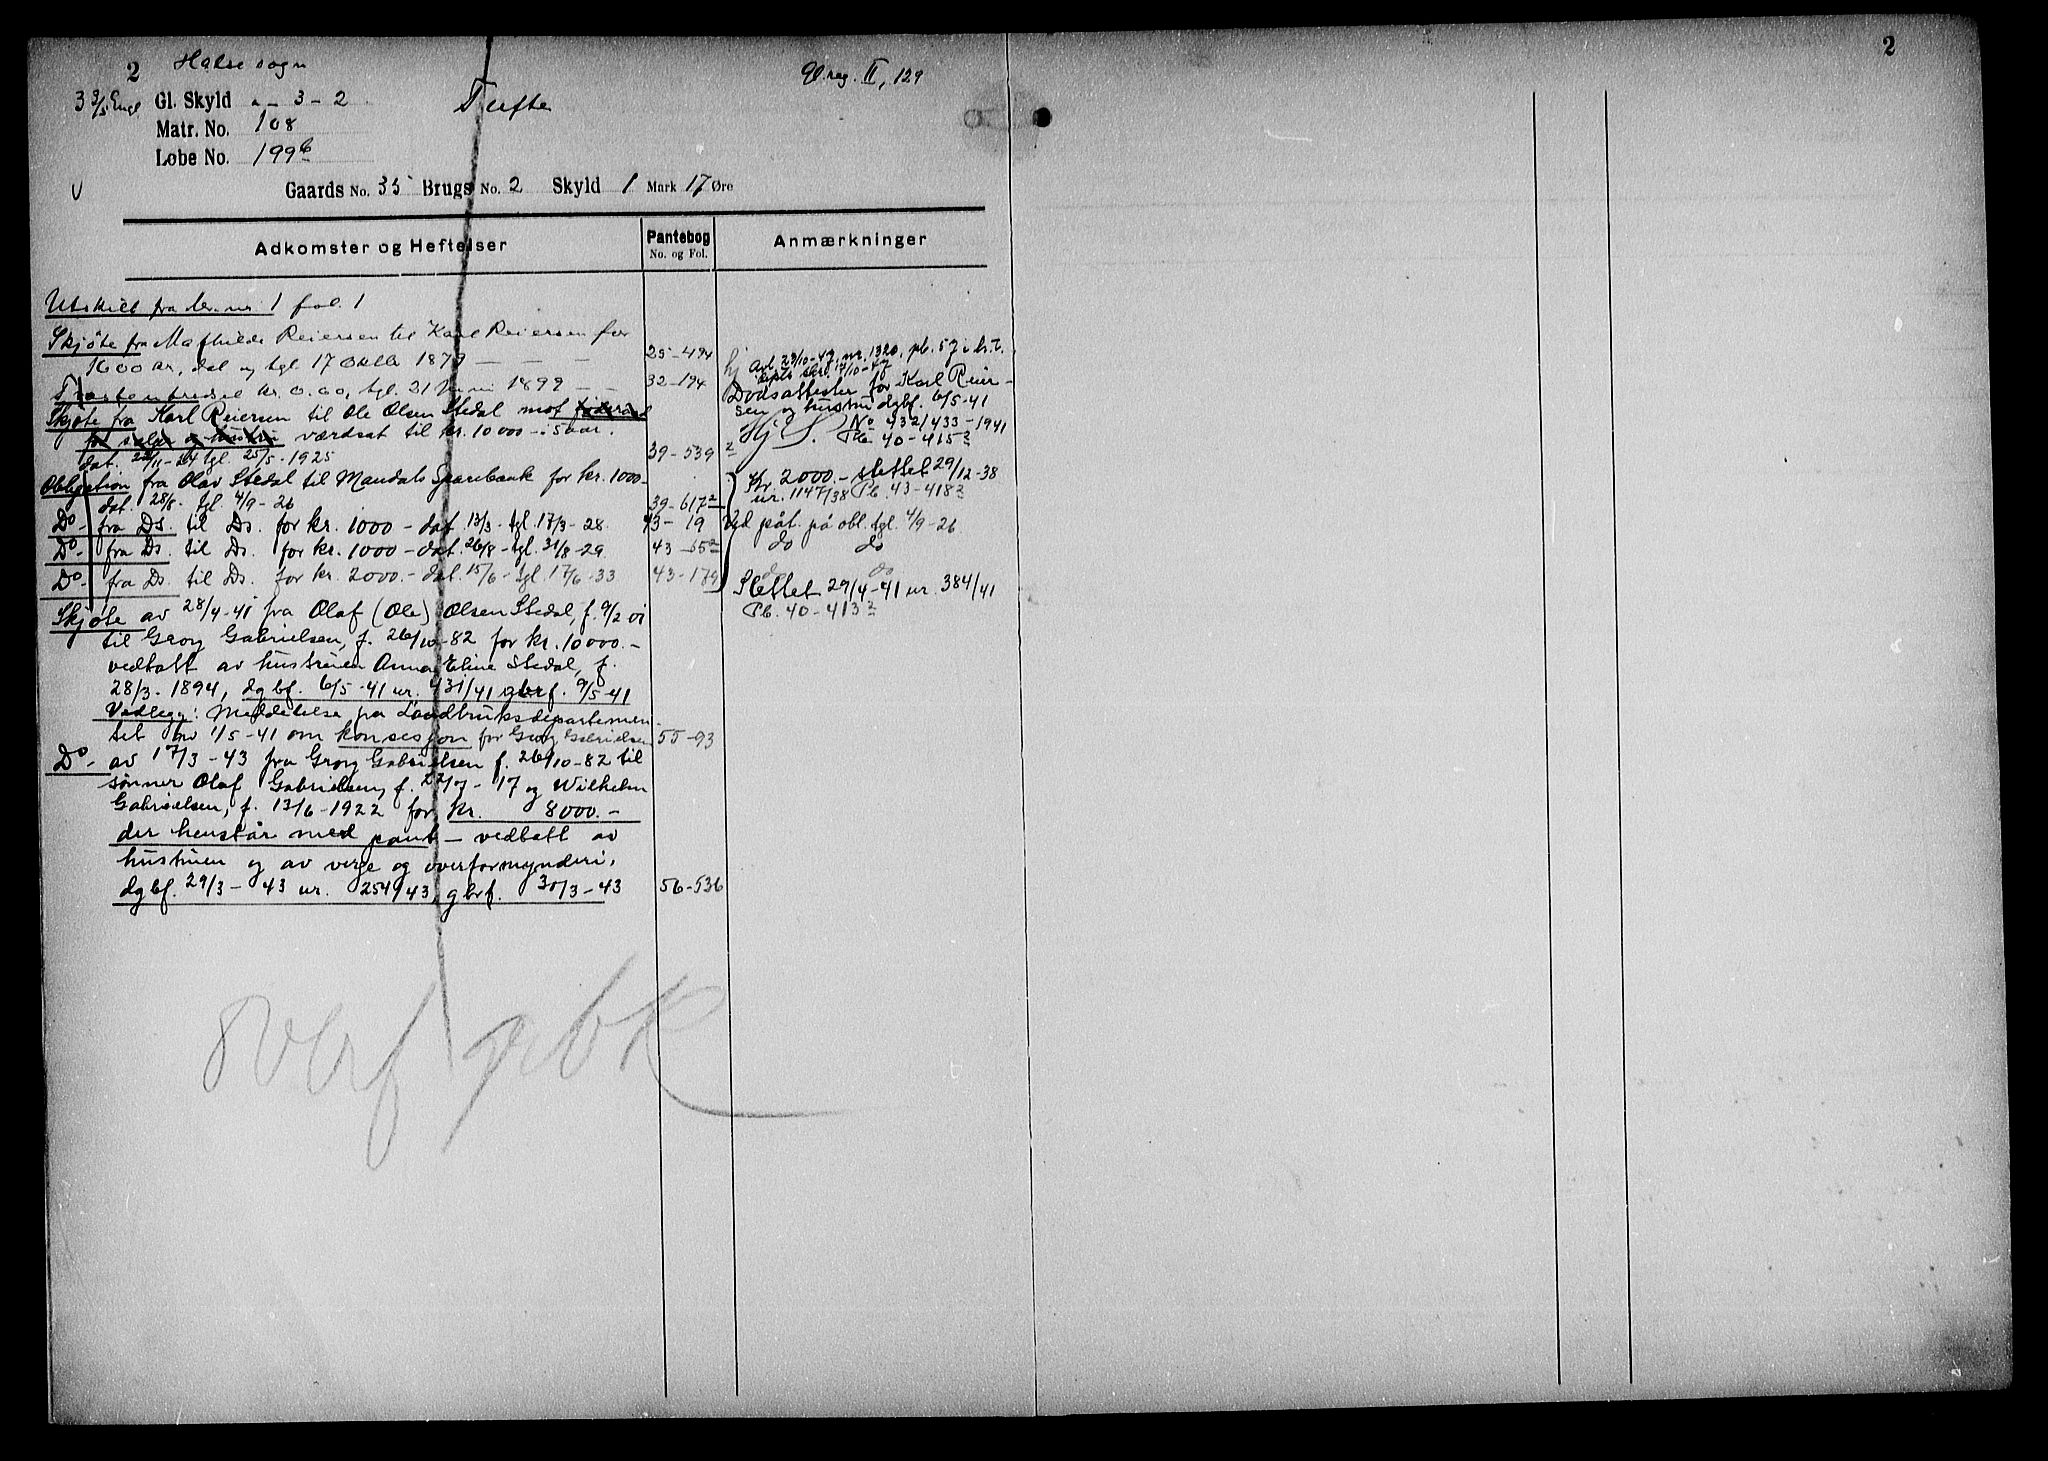 2 Halse sogn
Gl. reg. II, 129
2
3 3/5 Engl Gl. Skyld - 3 - 2 Tufte
Matr. No. 108
Løbe No. 199b
Gaards No. 35 Brugs No. 2 Skyld 1 Mark 17 Øre
Adkomster og Heftelser
Pantebog
No. og Fol.
Anmærkninger
Utskilt fra br. nr. 1 fol. 1
Skjøte fra Mathilde Reiersen til Karl Reiersen for
1600 kr, dat og tgl 17 Oktb 1879 - - - 25-494
kr. 0.60, tgl. 21 Juni 1899 - - 32-194
Skjøte fra Karl Reiersen til Ole Olsen Stedal mot føderaad
for selger og hustru værdsat til kr. 10000 - i 5 aar.
dat. 22/11-24 tgl. 25/5-1925 39-539
Obligation fra Olav Stedal til Mandals Sparebank for kr. 1000-
dat. 28/8- tgl 4/9-26 39-617²
Do- fra Ds. til Ds. for kr. 1000 - dat 13/3 - tgl. 17/3-28. 43-19
Do- fra Ds. til Ds. for kr. 1000 - dat. 26/8 - tgl. 31/8-29. 43-55²
Do- fra Ds. til Ds. for kr. 2000.- dat. 15/6 - tgl. 17/6-33 43-179
Skjøte av 28/4-41 fra Olaf (Ole) Olsen Stedal, f. 9/2 01
til Georg Gabrielsen, f. 26/10-82 for kr. 10000.-
vedtatt av hustruen Anna Eline Stedal, f.
28/3-1894, dgbf. 6/5-41 nr. 431/41 gbrf. 9/5-41
Vedlegg: Meddelelse fra Landbruksdepartemen-
tet av 1/5-41 om konsesjon for Georg Gabrielsen 55-93
Do- av 17/3-43 fra Georg Gabrielsen f. 26/10-82 til
sønner Olaf Gabrielsen, f. 22/7-17 og Wilhelm
Gabrielsen, f. 13/6-1922 for kr. 8000.-
der henstår med pant - vedtatt av
hustruen og av verge og overformynderi.
dgbf. 29/3-43 nr. 254/43, gbrf. 30/3-43 56-536
Avl. 29/10-47, nr. 1320, pb. 57
Dødsattester for Karl Reier-
sen og hustru dgbf. 6/5-41
No 432/433-1941
Pb. 40-415²
Kr 2000.- slettet 29/12-38
nr. 1147/38 Pb. 43-418²
Ved påt. på obl. tgl. 4/9-26
do do
do do
Slettet 29/4-41 nr. 384/41
Pb. 40-413²
overf gbk